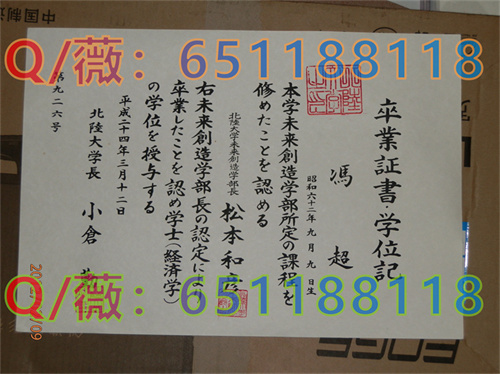 Q/薇: 651188118
卒業証書・学位記
馮 超
昭和六十二年九月九日生
本学未来創造学部所定の課程を
修めたことを認める
北陸大学未来創造学部長 松本和彦
右未来創造学部長の認定により
卒業したことを認め学士(経済学)
の学位を授与する
平成二十四年三月十二日
北陸大学長 小倉
第九二六号
Q/薇: 651188118
中国制